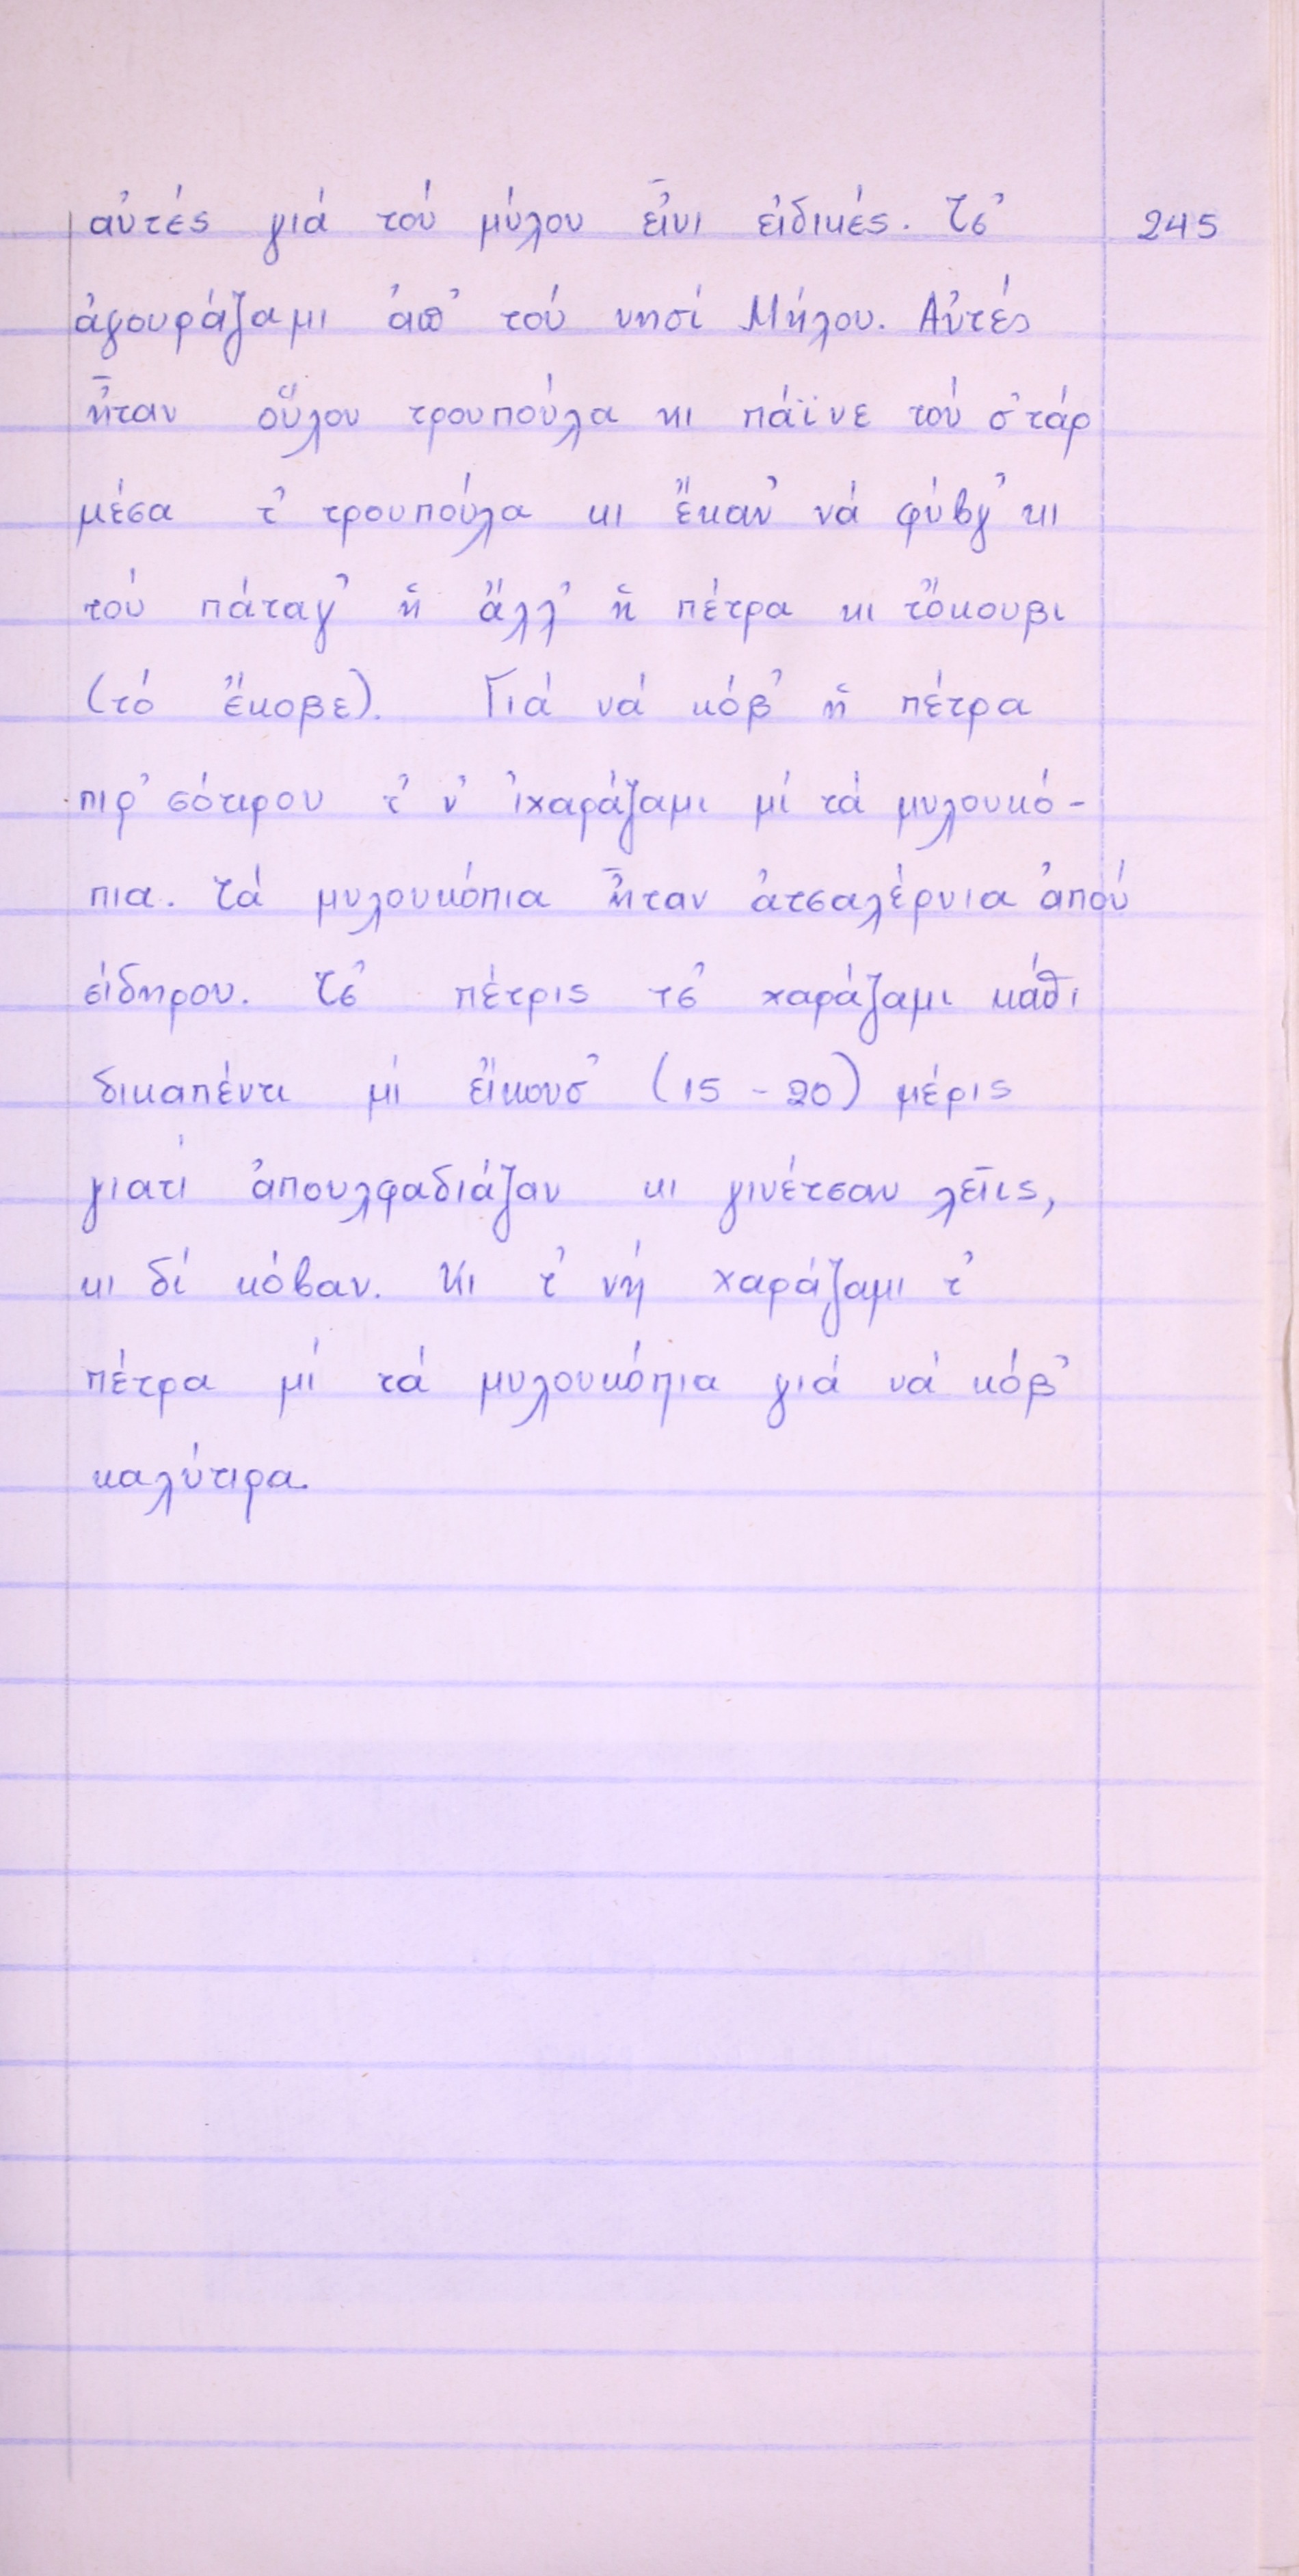 αὐτές γιά τού μύλου εἶνι εἰδικές. Τσ' 245
ἀγουράζαμι ἀπ' τού νησί Μήλου. Αὐτές
ἦταν οὕλου τρουπούλα κι πάϊνε τού σ'τάρ
μέσα τ' τρουπούλα κι ἔκαν' νά φύβγ' κι
τού πάταγ' ἡ ἄλλ' ἡ πέτρα κι τὄκουβι
(τό ἔκοβε). Γιά νά κόβ' ἡ πέτρα
πιρ'σότιρου τ' ν' ἰχαράζαμι μί τά μυλουκό-
πια. Τά μυλουκόπια ἦταν ἀτσαλέρνια ἀπού
σίδηρου. Τσ' πέτρις τσ' χαράζαμι κάθι
δικαπέντι μί εἴκουσ' (15 - 20) μέρις
γιατί ἀπουλφαδιάζαν κι γινέτσαν λεῖις,
κι δί κόβαν. Κι τ' νή χαράζαμι τ'
πέτρα μί τά μυλουκόπια γιά νά κόβ'
καλύτιρα.